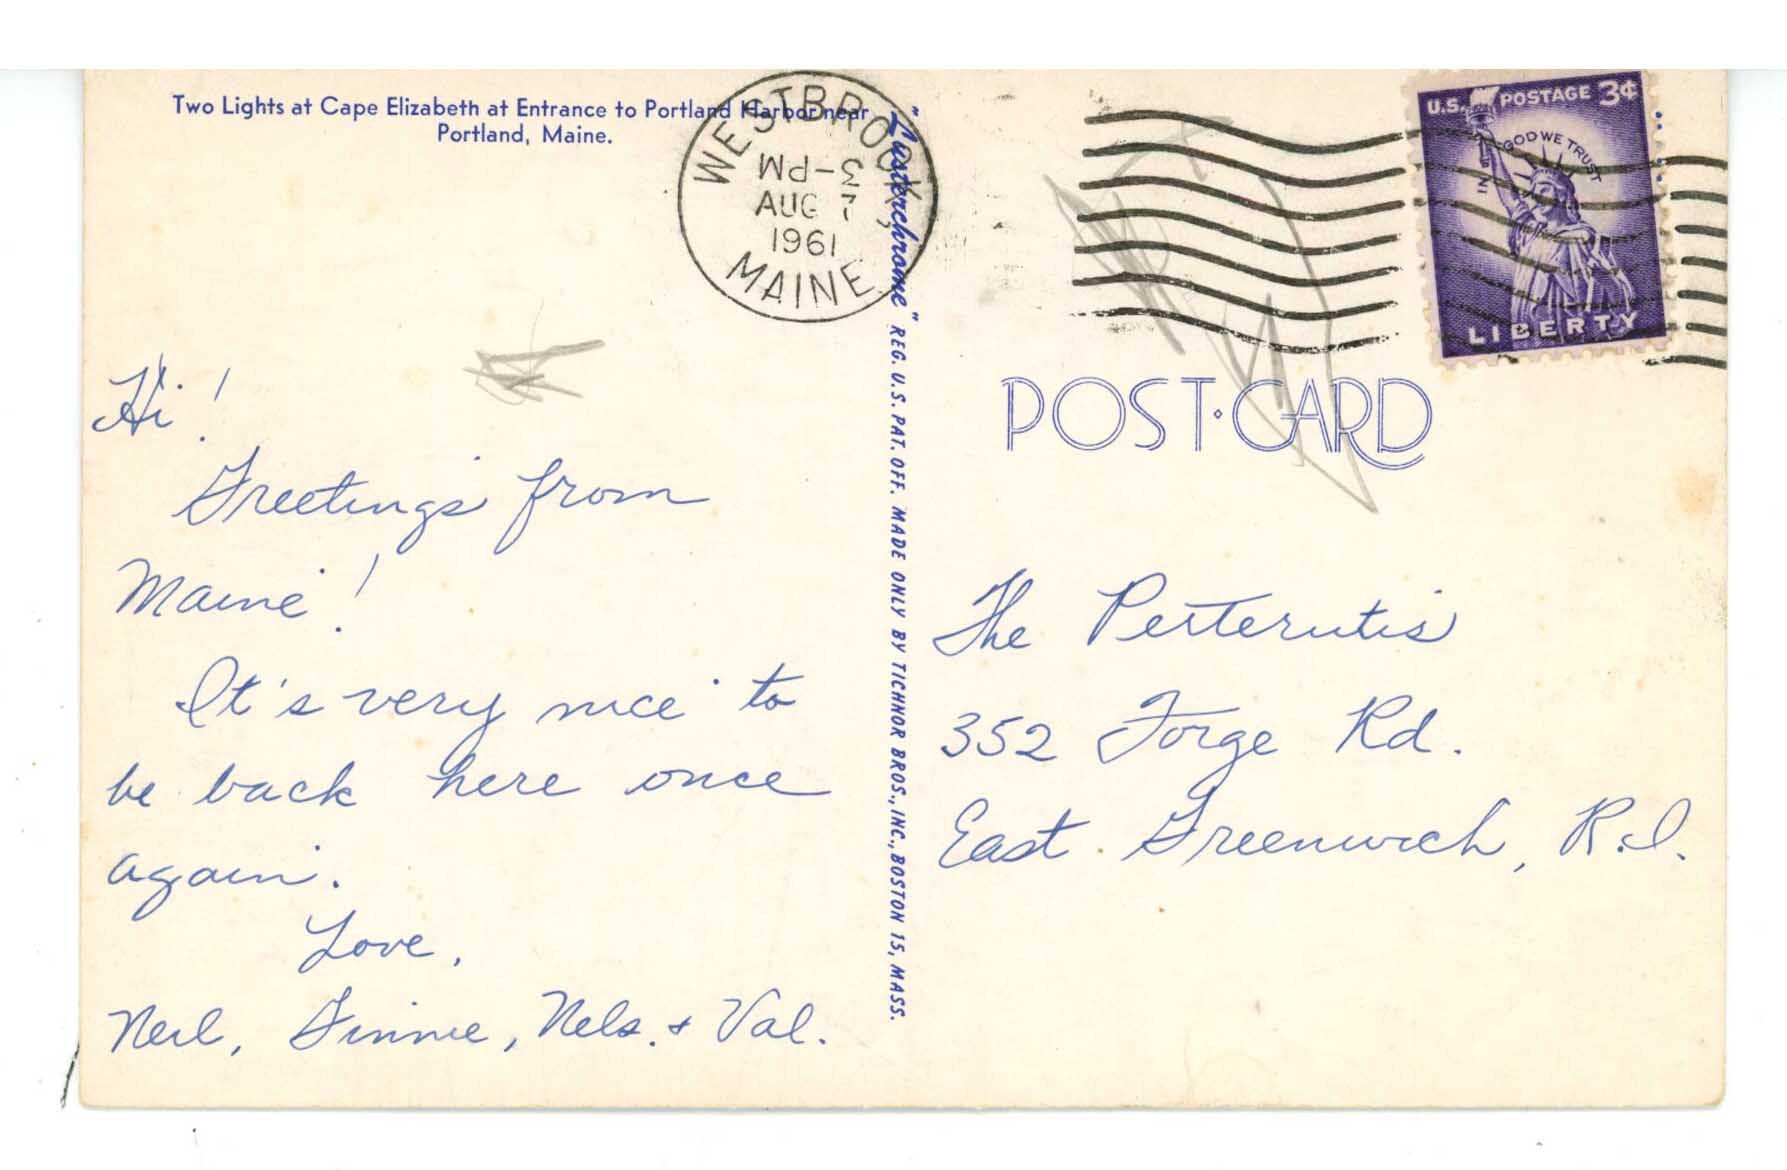 Two Lights at Cape Elizabeth at Entrance to Portland Harbor near
Portland, Maine.
WESTBROOK,
3-PM
AUG 7
1961
MAINE
U.S. POSTAGE 3¢
IN GOD WE TRUST
LIBERTY
"Lusterchrome" REG. U.S. PAT. OFF. MADE ONLY BY TICHNOR BROS., INC., BOSTON 15, MASS.
POST·CARD
Hi!
Greetings from
Maine!
It's very nice to
be back here once
again.
Love,
Neil, Ginnie, Nels. + Val.
The
352 Forge Rd.
East Greenwich, R.I.